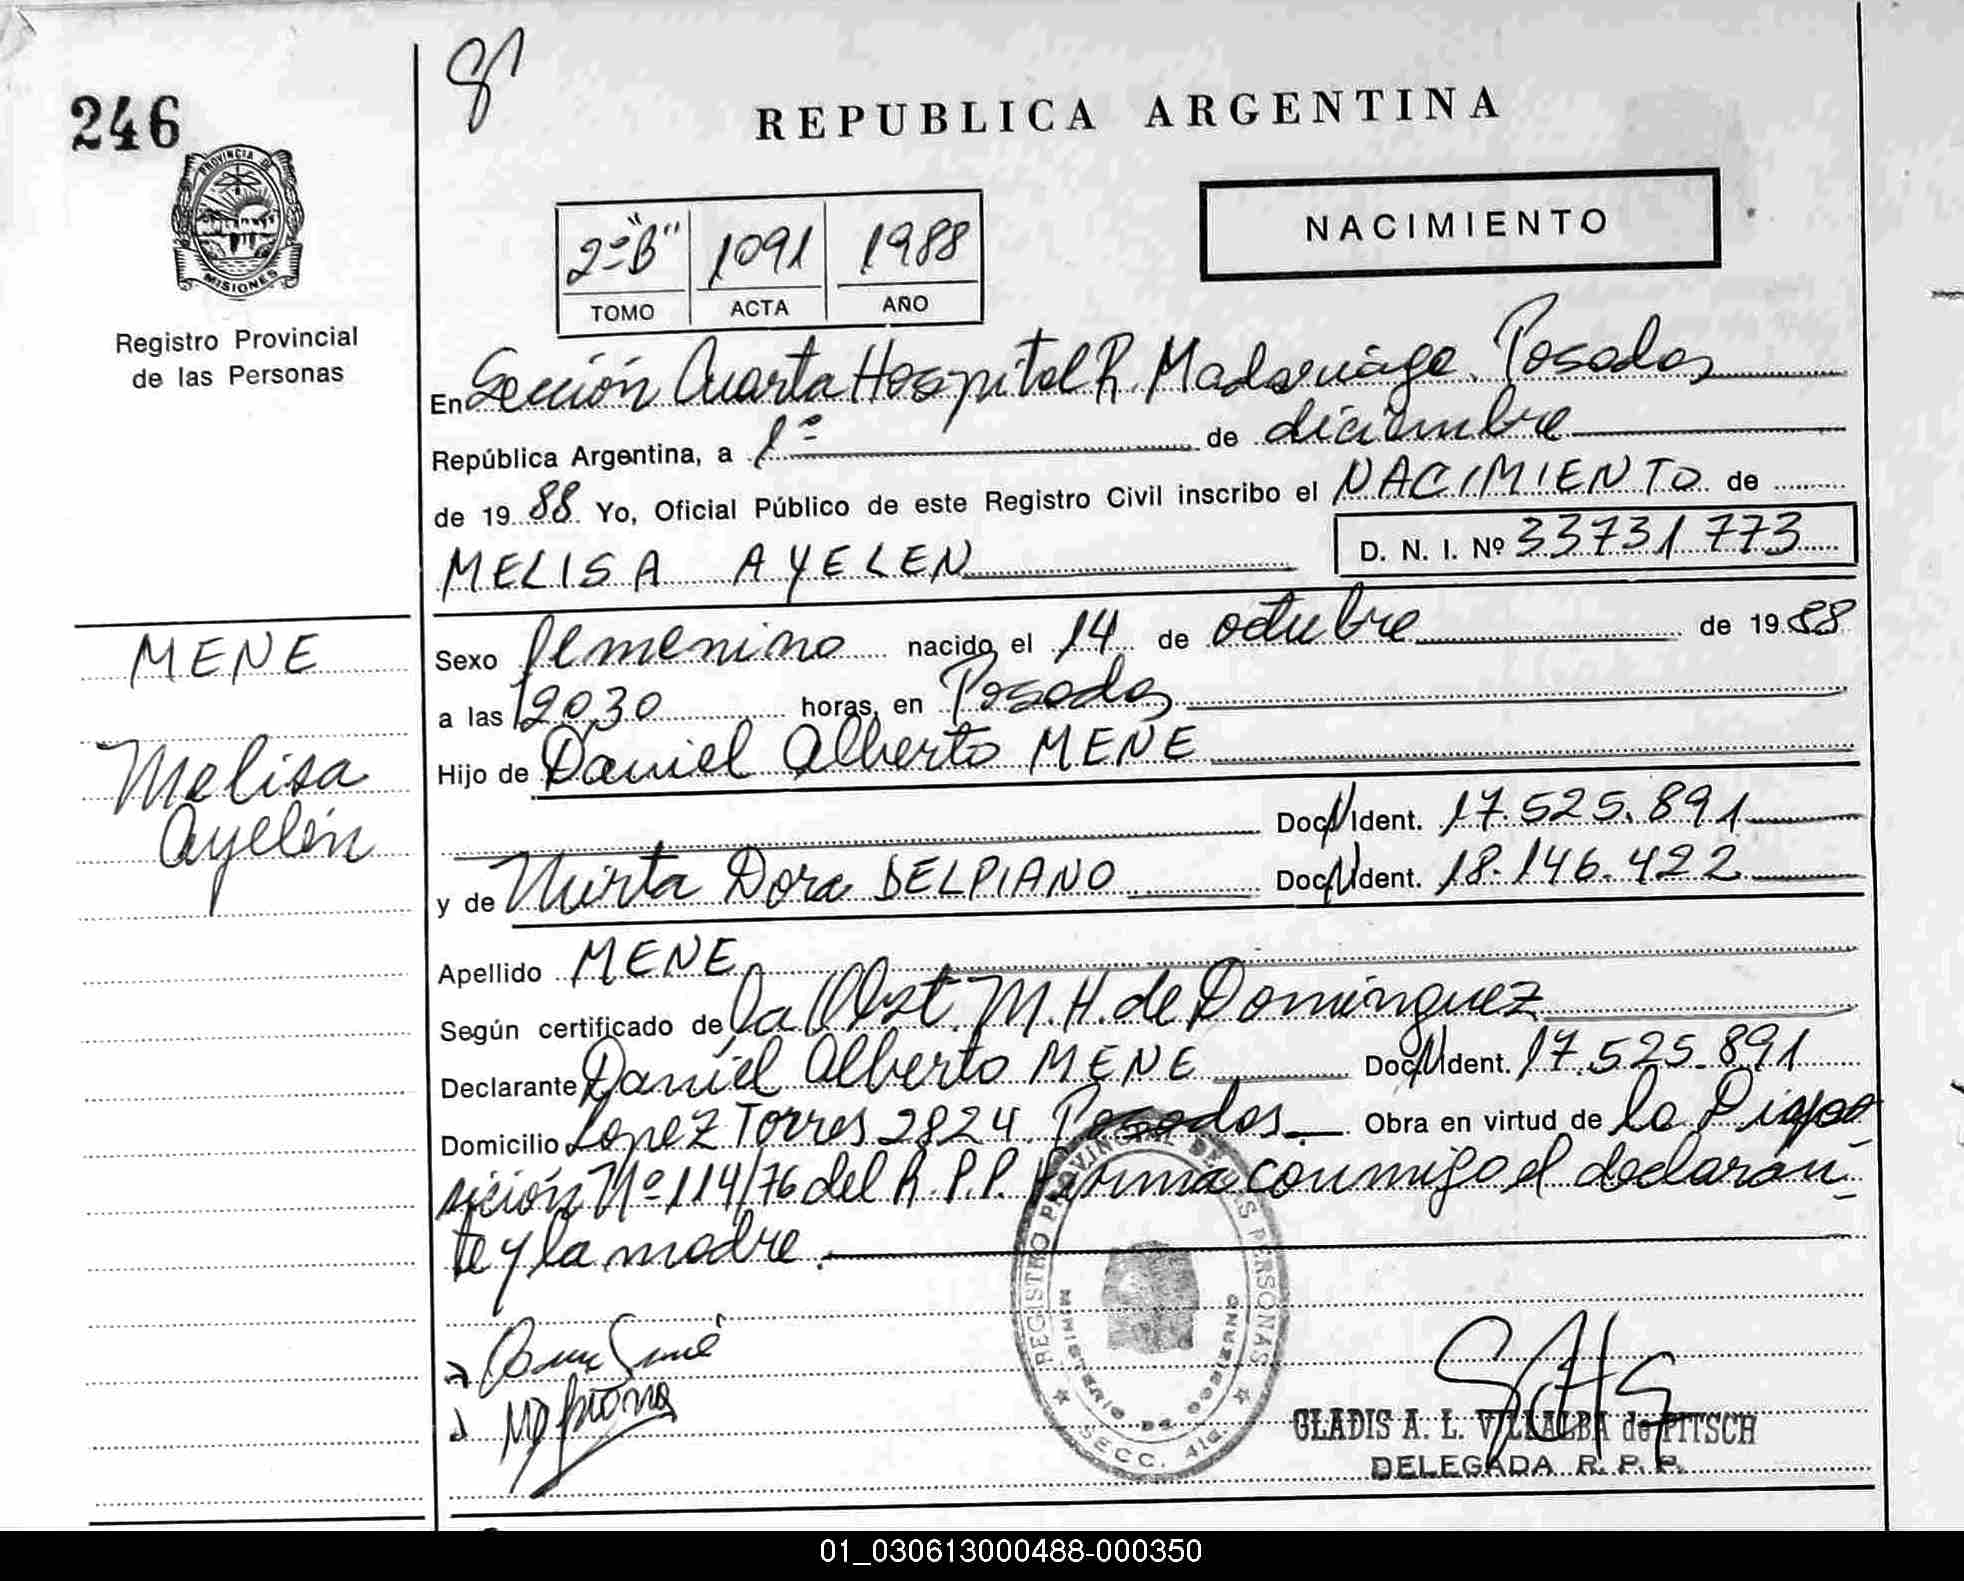 246
PROVINCIA DE
MISIONES
Registro Provincial
de las Personas
REPUBLICA ARGENTINA
2º "B" 1091 1988
TOMO ACTA AÑO
NACIMIENTO
En Sección Cuarta Hospital R. Madariaga. Posadas
República Argentina, a 1º de diciembre
de 1988 Yo, Oficial Público de este Registro Civil inscribo el NACIMIENTO de
MELISA AYELEN D. N. I. Nº 33731773
MENE
Melisa
Ayelén
Sexo femenino nacido el 14 de octubre de 1988
a las 12030 horas, en Posadas
Hijo de Daniel Alberto MENE
Doc. N. Ident. 17.525.891
y de Mirta Dora DELPIANO Doc. N. Ident. 18.146.422
Apellido MENE
Según certificado de la Obst. M. H. de Domínguez
Declarante Daniel Alberto MENE Doc. N. Ident. 17.525.891
Domicilio Lopez Torres 2824. Posadas. Obra en virtud de la Dispo-
sición Nº 114/76 del R. P. P. Firma conmigo el declaran-
te y la madre.
REGISTRO PROVINCIAL DE LAS PERSONAS
MINISTERIO DE GOBIERNO
SECC. 4ta.
GLADIS A. L. VILLALBA de PITSCH
DELEGADA R. P. P.
01_030613000488-000350